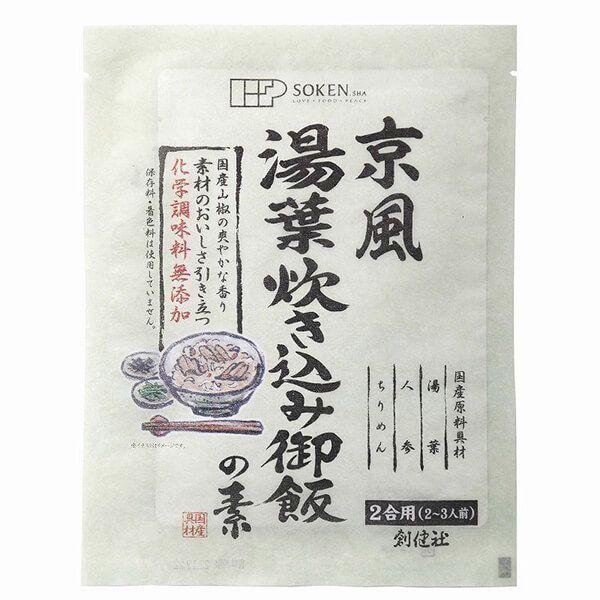 SOKEN.SHA
LOVE・FOOD・PEACE
京風
湯葉炊き込み御飯
の素
国産山椒の爽やかな香り
素材のおいしさ引き立つ
化学調味料無添加
保存料・着色料は使用していません。
※イラストはイメージです。
国産原料具材
湯葉
人参
ちりめん
2合用(2~3人前)
創健社
国産
具材